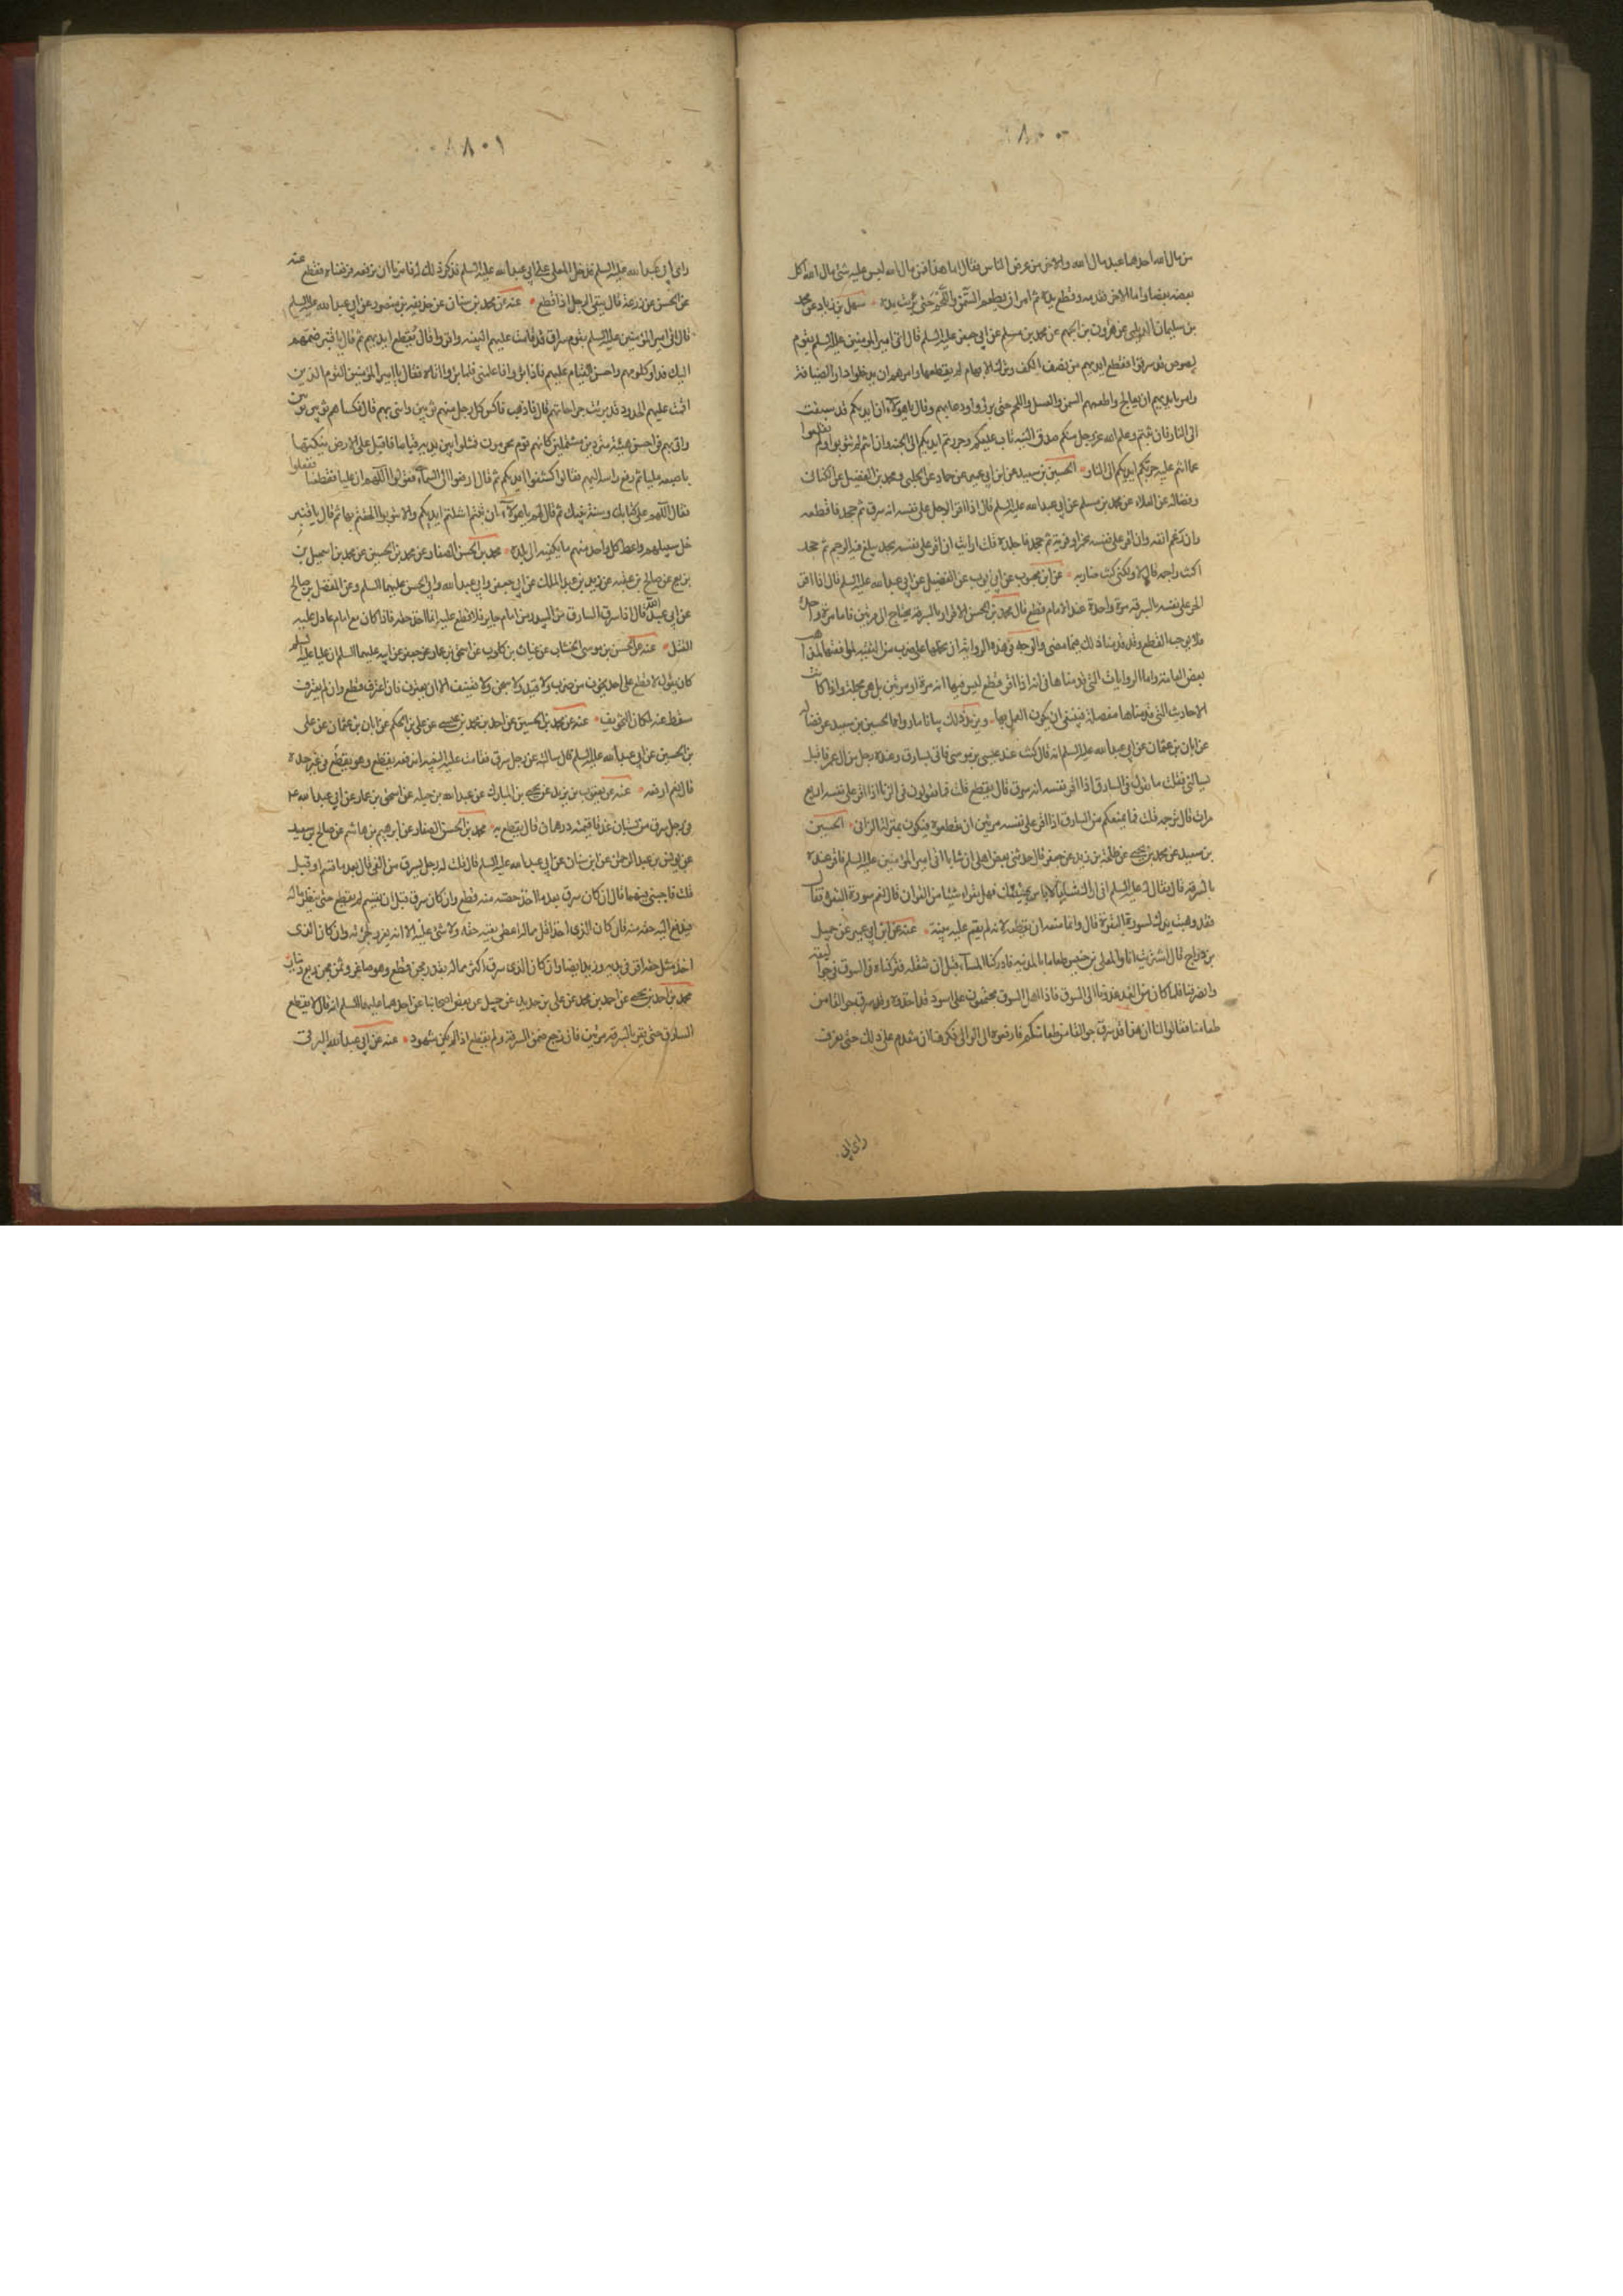 ٨٠٠
من مال الله احدهما عبد مال الله والاخر من عرض الناس فقال اما هذا فمن مال الله ليس عليه شئ مال الله اكل
بعضه بعضا واما الاخر فقدمه وقطع يده ثم امر ان يطعم السمن واللحم حتى برئت يده سهل بن زياد عن محمد
بن سليمان الديلمى عن هرون بن الجهم عن محمد بن مسلم عن ابي جعفر عليه السلم قال اتى امير المؤمنين عليه السلم بقوم
لصوص قد سرقوا فقطع ايديهم من نصف الكف وترك الابهام لم يقطعها وامرهم ان يدخلوا دار الضيافة
وامر بايديهم ان يعالج واطعمهم السمن والعسل واللحم حتى برؤا ودعا بهم وقال يا هؤلاء ان ايديكم قد سبقت
الى النار فان تبتم وعلم الله عز وجل منكم صدق النية تاب عليكم وجررتم ايديكم الى الجنة وان انتم لم تتوبوا ولم تقلعوا
عما انتم عليه جرتكم ايديكم الى النار الحسين بن سعيد عن ابن ابي عمير عن حماد عن الحلبي ومحمد بن الفضيل عن الكناني
وفضالة عن العلاء عن محمد بن مسلم عن ابي عبد الله عليه السلم قال اذا اقر الرجل على نفسه انه سرق ثم جحد فاقطعه
وان رغم انفه وان اقر على نفسه بخمر او فرية ثم جحد فاجلده قلت ارايت ان اقر على نفسه بحد يبلغ فيه الرجم ثم جحد
اكنت راجمه قال لا ولكنى كنت ضاربه عن ابن محبوب عن ابي ايوب عن الفضيل عن ابي عبد الله عليه السلم قال اذا اقر
الحر على نفسه بالسرقة مرة واحدة عند الامام قطع قال محمد بن الحسن الاقرار بالسرقة يحتاج الى مرتين فاما مرة واحدة
فلا يوجب القطع وقد قدمنا ذلك فيما مضى والوجه في هذه الرواية ان نحملها على ضرب من التقية لموافقتها لمذاهب
بعض العامة واما الروايات التى قدمناها في انه اذا اقر قطع ليس فيها انه مرة او مرتين بل هي مجملة واذا كانت
الاحاديث التى قدمناها مفصلة فينبغى ان يكون العمل بها ويزيد ذلك بيانا ما رواه الحسين بن سعيد عن فضالة
عن ابان بن عثمان عن ابي عبد الله عليه السلم انه قال كنت عند عيسى بن موسى فاتى بسارق وعنده رجل من ال عمر فاقبل
يسالنى فقلت ما تقول في السارق اذا اقر على نفسه انه سرق قال يقطع قلت فما تقولون في الزنا اذا اقر على نفسه اربع
مرات قال نرجمه قلت فما يمنعكم من السارق اذا اقر على نفسه مرتين ان تقطعوه فيكون بمنزلة الزانى الحسين
بن سعيد عن محمد بن يحيى عن طلحة بن زيد عن جعفر قال حدثنى بعض اهلى ان شابا اتى امير المؤمنين عليه السلم فاقر عنده
بالسرقة قال فقال له عليه السلم انى اراك شابا لا باس بهيئتك فهل تقرا شيئا من القران قال نعم سورة البقرة فقال
فقد وهبت يدك لسورة البقرة قال وانما منعه ان يقطعه لانه لم يقم عليه بينة عنه عن ابن ابي عمير عن جميل
بن دراج قال اشتريت انا والمعلى بن خنيس طعاما بالمدينة فادركنا المساء قبل ان ننقله فتركناه في السوق في جواليقه
وانصرفنا فلما كان من الغد غدونا الى السوق فاذا اهل السوق مجتمعون على اسود قد اخذوه وقد سرق جوالقا من
طعامنا فقالوا لنا ان هذا قد سرق جوالقا من طعامكم فارفعوه الى الوالى فكرهنا ان نتقدم على ذلك حتى نعرف
راى ابي
٨٠١
راى ابي عبد الله عليه السلم فدخل المعلى على ابي عبد الله عليه السلم فذكر ذلك له فامرنا ان نرفعه فرفعناه فقطع عنه
عن الحسن عن زرعة قال يتيم الرجل اذا قطع عنه عن محمد بن سنان عن حذيفة بن منصور عن ابي عبد الله عليه السلم
قال اتى امير المؤمنين عليه السلم بقوم سراق قد قامت عليهم البينة واقروا قال فقطع ايديهم ثم قال يا قنبر ضمهم
اليك فداو كلومهم واحسن القيام عليهم فاذا برؤا فاعلمنى فلما برؤا اتاه فقال يا امير المؤمنين القوم الذين
اقمت عليهم الحدود قد برئت جراحاتهم قال فاذهب فاكس كل رجل منهم ثوبين وائتنى بهم قال فكساهم ثوبين ثوبين
واتى بهم في احسن هيئة متردين مشتملين كانهم قوم محرمون فمثلوا بين يديه قياما فاقبل على الارض ينكتها
باصبعه مليا ثم رفع راسه اليهم فقال اكشفوا ايديكم ثم قال ارفعوا الى السماء فقولوا اللهم ان عليا قطعنا ففعلوا
فقال اللهم على كتابك وسنة نبيك ثم قال لهم يا هؤلاء ان تبتم استلمتم ايديكم والا تتوبوا الحقتم بها ثم قال يا قنبر
خل سبيلهم واعط كل واحد منهم ما يكفيه الى بلده محمد بن الحسن الصفار عن محمد بن الحسين عن محمد بن اسمعيل بن
بزيع عن صالح بن عقبة عن يزيد بن عبد الملك عن ابي جعفر وابي عبد الله وابي الحسن عليهم السلم وعن المفضل بن صالح
عن ابي عبد الله قال اذا سرق السارق من البيدر من امام جاير فلا قطع عليه انما اخذ حقه فاذا كان مع امام عادل عليه
القتل عنه عن الحسن بن موسى الخشاب عن غياث بن كلوب عن اسحق بن عمار عن جعفر عن ابيه عليهما السلم ان عليا عليه السلم
كان يقول لا قطع على احد يخوف من ضرب ولا قيد ولا سجن ولا تعنيف الا ان يعترف فان اعترف قطع وان لم يعترف
سقط عنه لمكان التخويف عنه عن محمد بن الحسين عن احمد بن محمد بن يحيى عن علي بن الحكم عن ابان بن عثمان عن على
بن الحسين عن ابي عبد الله عليه السلم قال سالته عن رجل سرق فقامت عليه البينة ايرفعه يقطع وهو يقطع في غير حده
قال نعم ارفعه عنه عن يعقوب بن يزيد عن يحيى بن المبارك عن عبد الله بن جبلة عن اسحق بن عمار عن ابي عبد الله ع
في رجل سرق من بستان عذقا قيمته درهمان قال يقطع به محمد بن الحسن الصفار عن ابرهيم بن هاشم عن صالح بن سعيد
عن يونس بن عبد الرحمن عن ابن سنان عن ابي عبد الله عليه السلم قال قلت له رجل سرق من الفئ قال بعد ما قسم او قبل
قلت فاجبنى فيهما قال ان كان سرق بعد ما اخذ حصته منه قطع وان كان سرق قبل ان يقسم لم يقطع حتى ينظر ما له
فيدفع اليه حقه منه فان كان الذى اخذ اقل مما له اعطى بقية حقه ولا شئ عليه الا انه يعزر لجرئته وان كان الذى
اخذ مثل حقه اقر في يده وزيد ايضا وان كان الذى سرق اكثر مما له بقدر مجن قطع وهو صاغر وثمن مجن ربع دينار
محمد بن احمد بن يحيى عن احمد بن محمد عن على بن حديد عن جميل عن بعض اصحابنا عن احدهما عليهما السلم انه قال لا يقطع
السارق حتى يقر بالسرقة مرتين فان رجع ضمن السرقة ولم يقطع اذا لم يكن شهود عنه عن ابي عبد الله البرقى